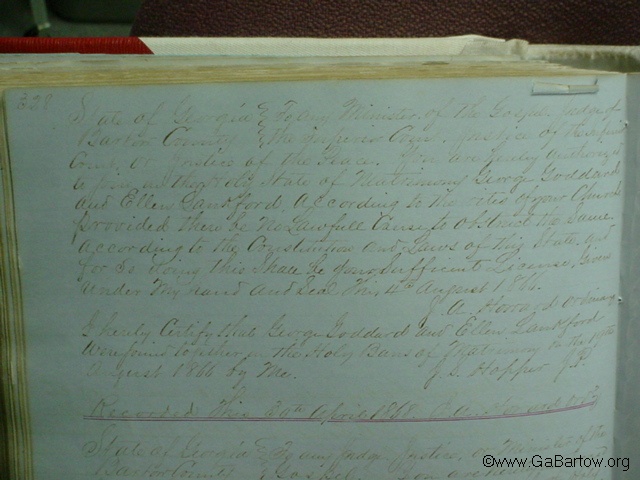 328
State of Georgia } To any Minister of the Gospel, Judge of
Bartow County } the Superior Court, Justice of the Inferior
Court or Justice of the Peace. You are hereby authorized
to join in the Holy State of Matrimony George Goddard
and Ellen Landford According to the rites of your Church
provided there be no Lawfull Cause to obstruct the Same
According to the Constitution and Laws of this State, and
for So doing this Shall be your Sufficient License, Given
under My hand and Seal This 4th August 1866.
J. A. Howard Ordinary
I hereby Certify that George Goddard and Ellen Landford
were Together in the Holy Bans of Matrimony on the
August 1866 by Me. J. S. Hopper J.P.
Recorded This 20th April 1868.
State of Georgia } To any Judge, Justice, or Minister of the
Bartow County } Gospel You are
©www.GaBartow.org